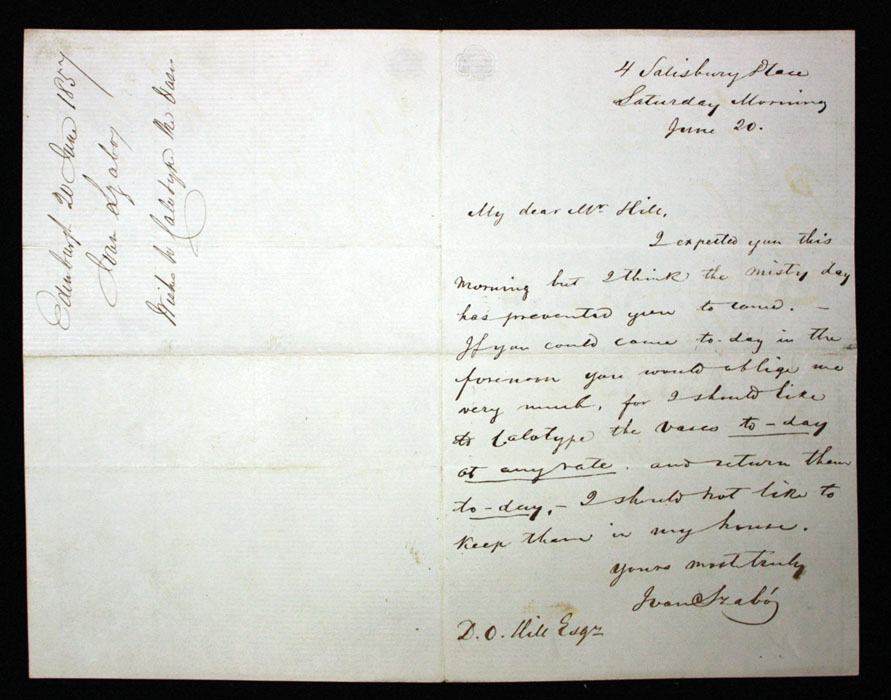 Edinburgh 20 June 1857
Ivan Szabo
Wishes to Calotype the Vases
4 Salisbury Place
Saturday Morning
June 20.
My dear Mr. Hill,
I expected you this
Morning but I think the misty day
has prevented you to come. –
If you could come to-day in the
forenoon you would oblige me
very much, for I should like
to Calotype the vases to-day
at any rate. and return them
to-day, – I should not like to
keep them in my house.
yours most truly
Ivan Szabó
D. O. Hill Esqr